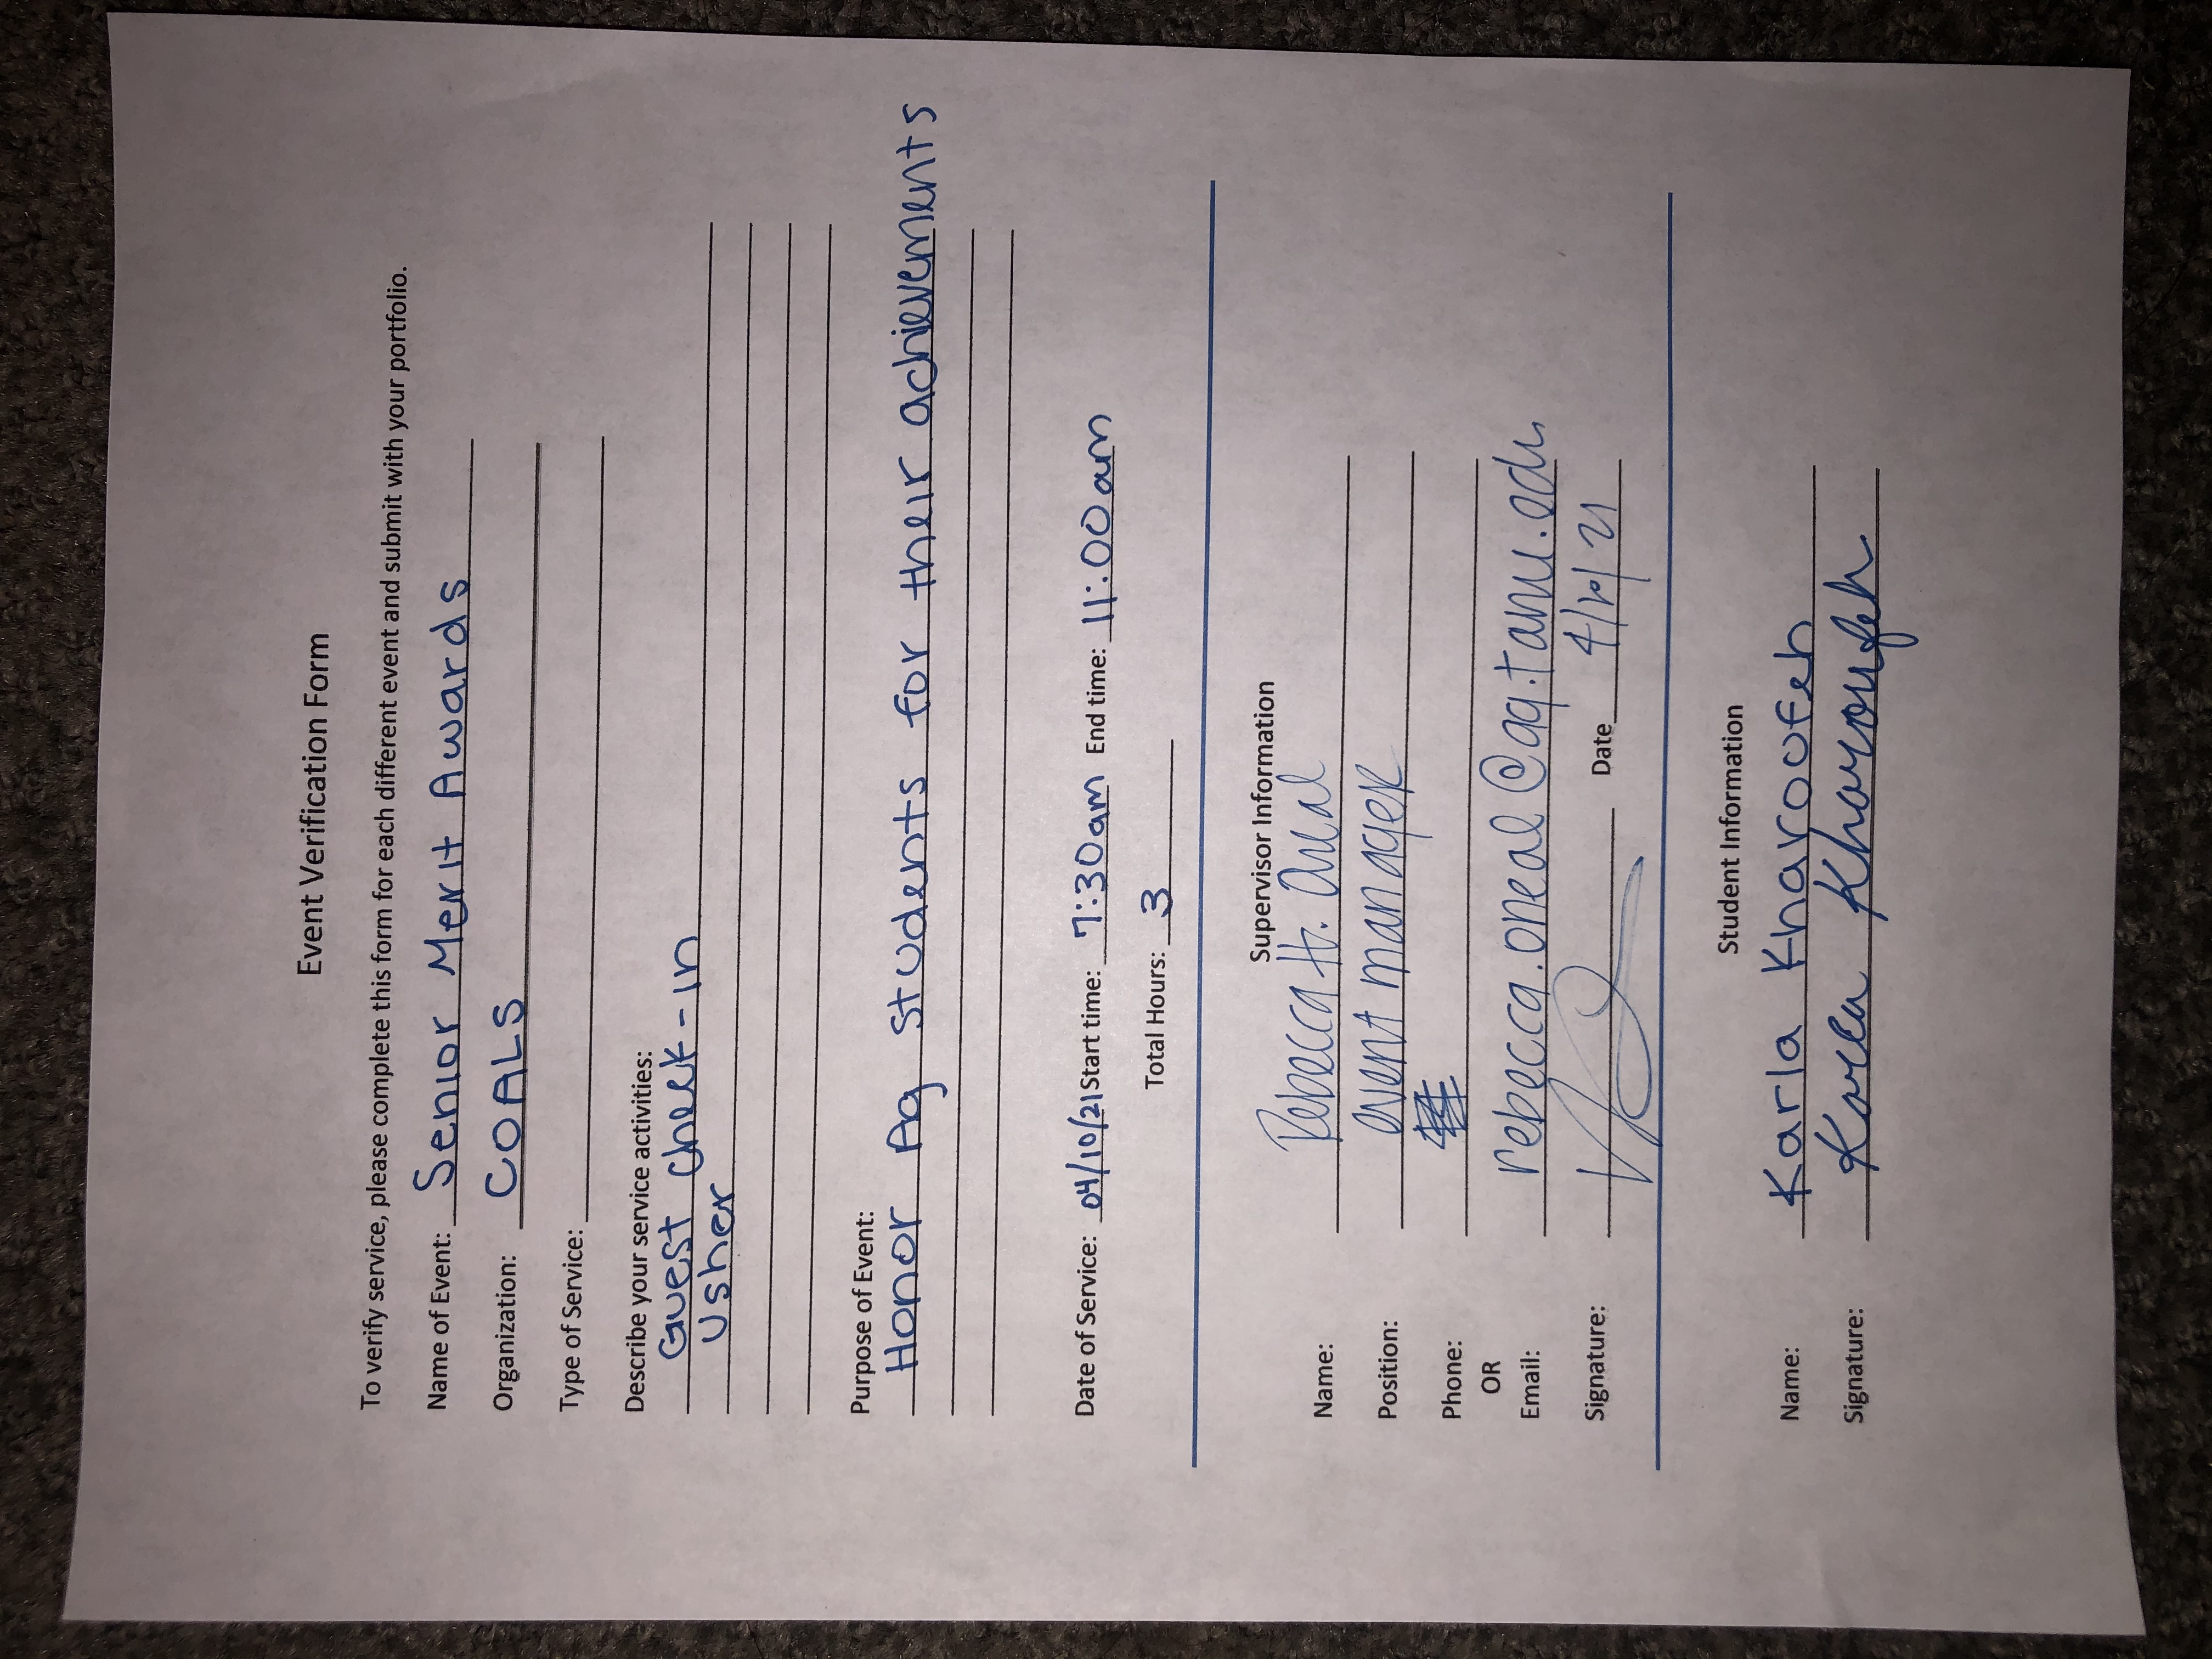 Event Verification Form
To verify service, please complete this form for each different event and submit with your portfolio.
Name of Event: Senior Merit Awards
Organization: COALS
Type of Service:
Describe your service activities:
Guest check-in
Usher
Purpose of Event:
Honor Ag students for their achievements
Date of Service: 04/10/21 Start time: 7:30am End time: 11:00am
Total Hours: 3
Supervisor Information
Name: Rebecca H.
Position: event manager
Phone:
OR
Email: rebecca.oneal@ag.tamu.edu
Signature: Date 4/10/21
Student Information
Name: Karla Kharoufeh
Signature: Karla Kharoufeh